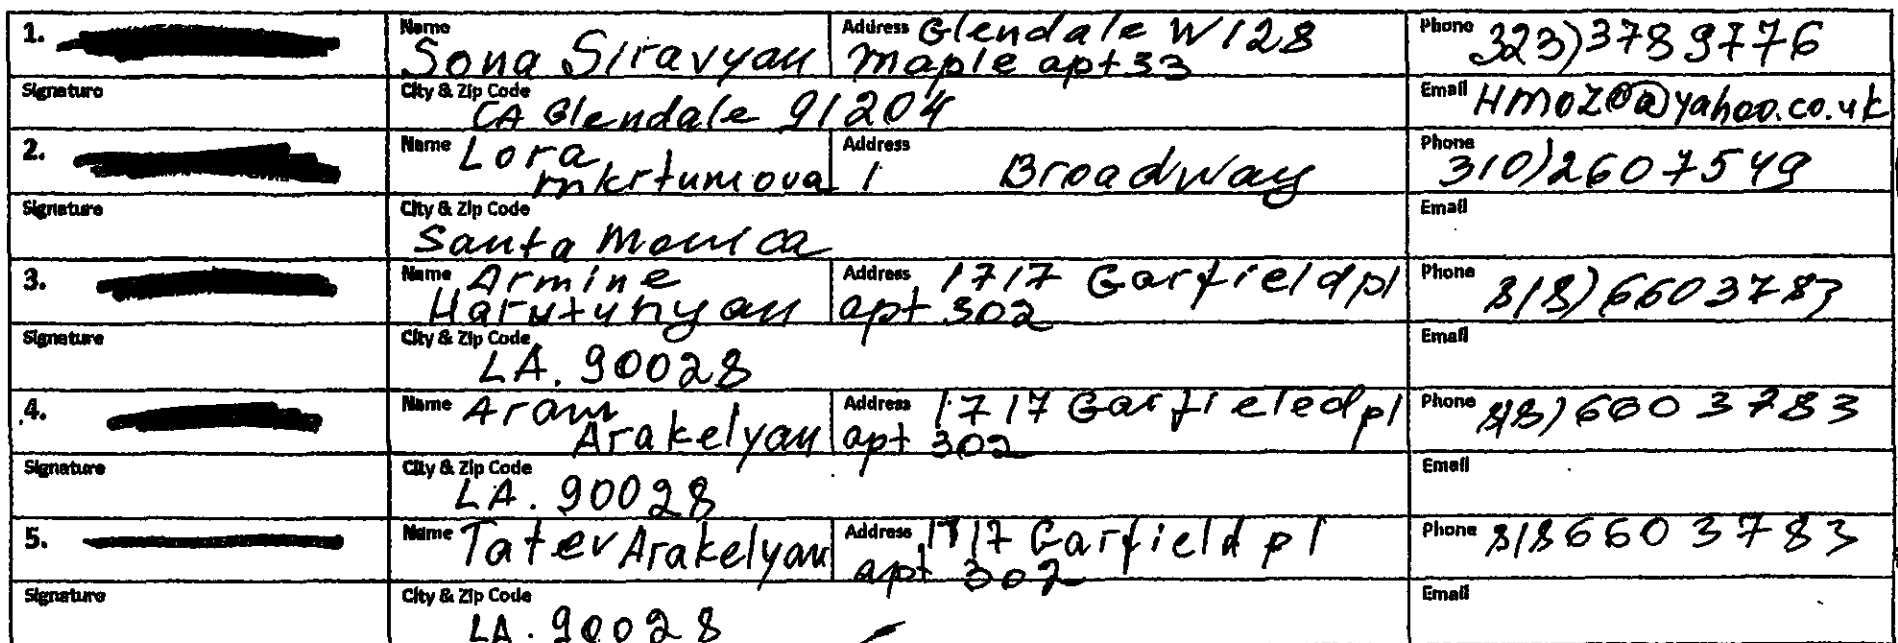 1.
Name Sona Siravyan
Address Glendale W 128
Maple apt 33
Phone 323)3789776
Signature
City & Zip Code
CA Glendale 91204
Email HMOZ@yahoo.co.uk
2.
Name Lora
mkrtumova
Address
1 Broadway
Phone
310)2607549
Signature
City & Zip Code
Santa Monica
Email
3.
Name Armine
Harutunyan
Address 1717 Garfield pl
apt 302
Phone
818)6603783
Signature
City & Zip Code
LA. 90028
Email
4.
Name Aram
Arakelyan
Address 1717 Garfieled pl
apt 302
Phone 818)660 3783
Signature
City & Zip Code
LA. 90028
Email
5.
Name Tatev Arakelyan
Address 1717 Garfield pl
apt 302
Phone 818 660 3783
Signature
City & Zip Code
LA. 90028
Email